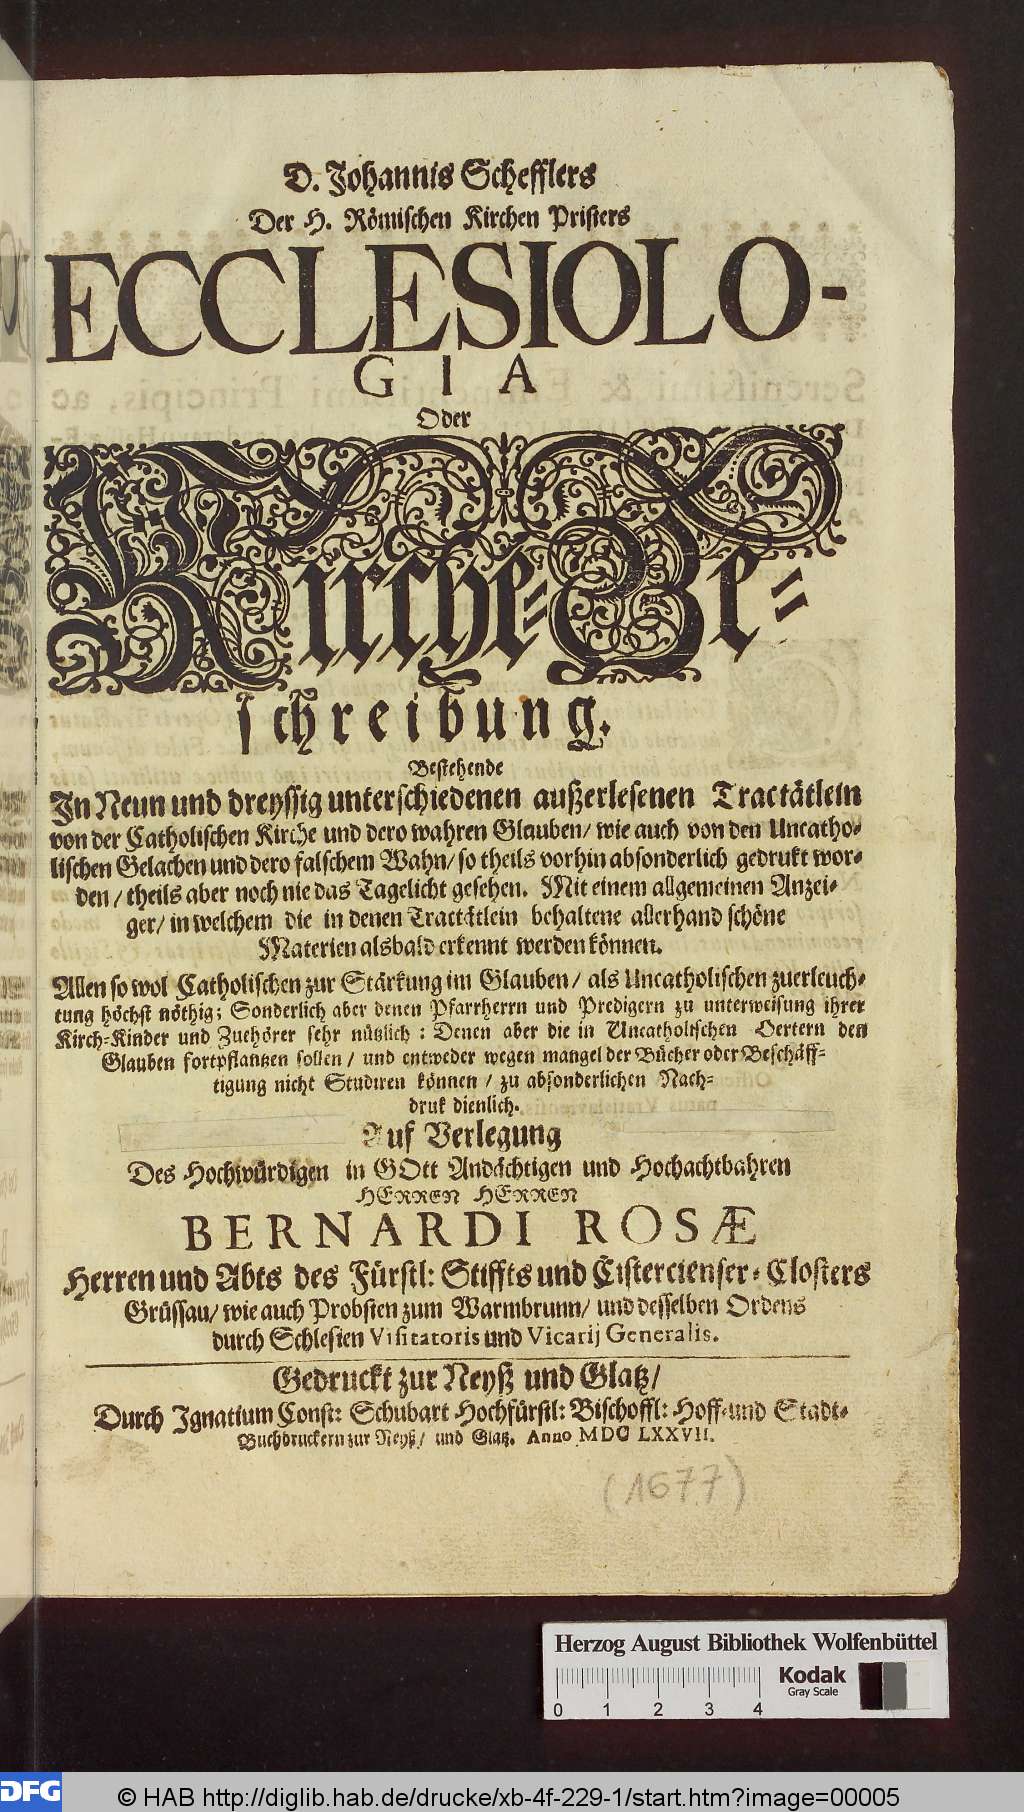 D. Johannis Schefflers
Der H. Römischen Kirchen Pristers
ECCLESIOLO-
GIA
Oder
Kirche-Be-
schreibung.
Bestehende
In Neun und dreyssig unterschiedenen außerlesenen Tractätlein
von der Catholischen Kirche und dero wahren Glauben/ wie auch von den Uncatho-
lischen Gelachen und dero falschem Wahn/ so theils vorhin absonderlich gedrukt wor-
den/ theils aber noch nie das Tagelicht gesehen. Mit einem allgemeinen Anzei-
ger/ in welchem die in denen Tractätlein behaltene allerhand schöne
Materien alsbald erkennt werden können.
Allen so wol Catholischen zur Stärkung im Glauben/ als Uncatholischen zuerleuch-
tung höchst nöthig; Sonderlich aber denen Pfarrherrn und Predigern zu unterweisung ihrer
Kirch-Kinder und Zuehörer sehr nützlich: Denen aber die in Uncatholischen Oertern den
Glauben fortpflantzen sollen/ und entweder wegen mangel der Bücher oder Beschäff-
tigung nicht Studiren können/ zu absonderlichen Nach-
druk dienlich.
Auf Verlegung
Des Hochwürdigen in GOtt Andächtigen und Hochachtbahren
HERREN HERREN
BERNARDI ROSÆ
Herren und Abts des Fürstl: Stiffts und Cistercienser-Closters
Grüssau/ wie auch Probsten zum Warmbrunn/ und desselben Ordens
durch Schlesien Visitatoris und Vicarij Generalis.
Gedruckt zur Neyß und Glatz/
Durch Ignatium Const: Schubart Hochfürstl: Bischoffl: Hoff-und Stadt-
Buchdruckern zur Neyß/ und Glatz. Anno MDC LXXVII.
(1677)
Herzog August Bibliothek Wolfenbüttel
Kodak
Gray Scale
0 1 2 3 4
DFG © HAB http://diglib.hab.de/drucke/xb-4f-229-1/start.htm?image=00005